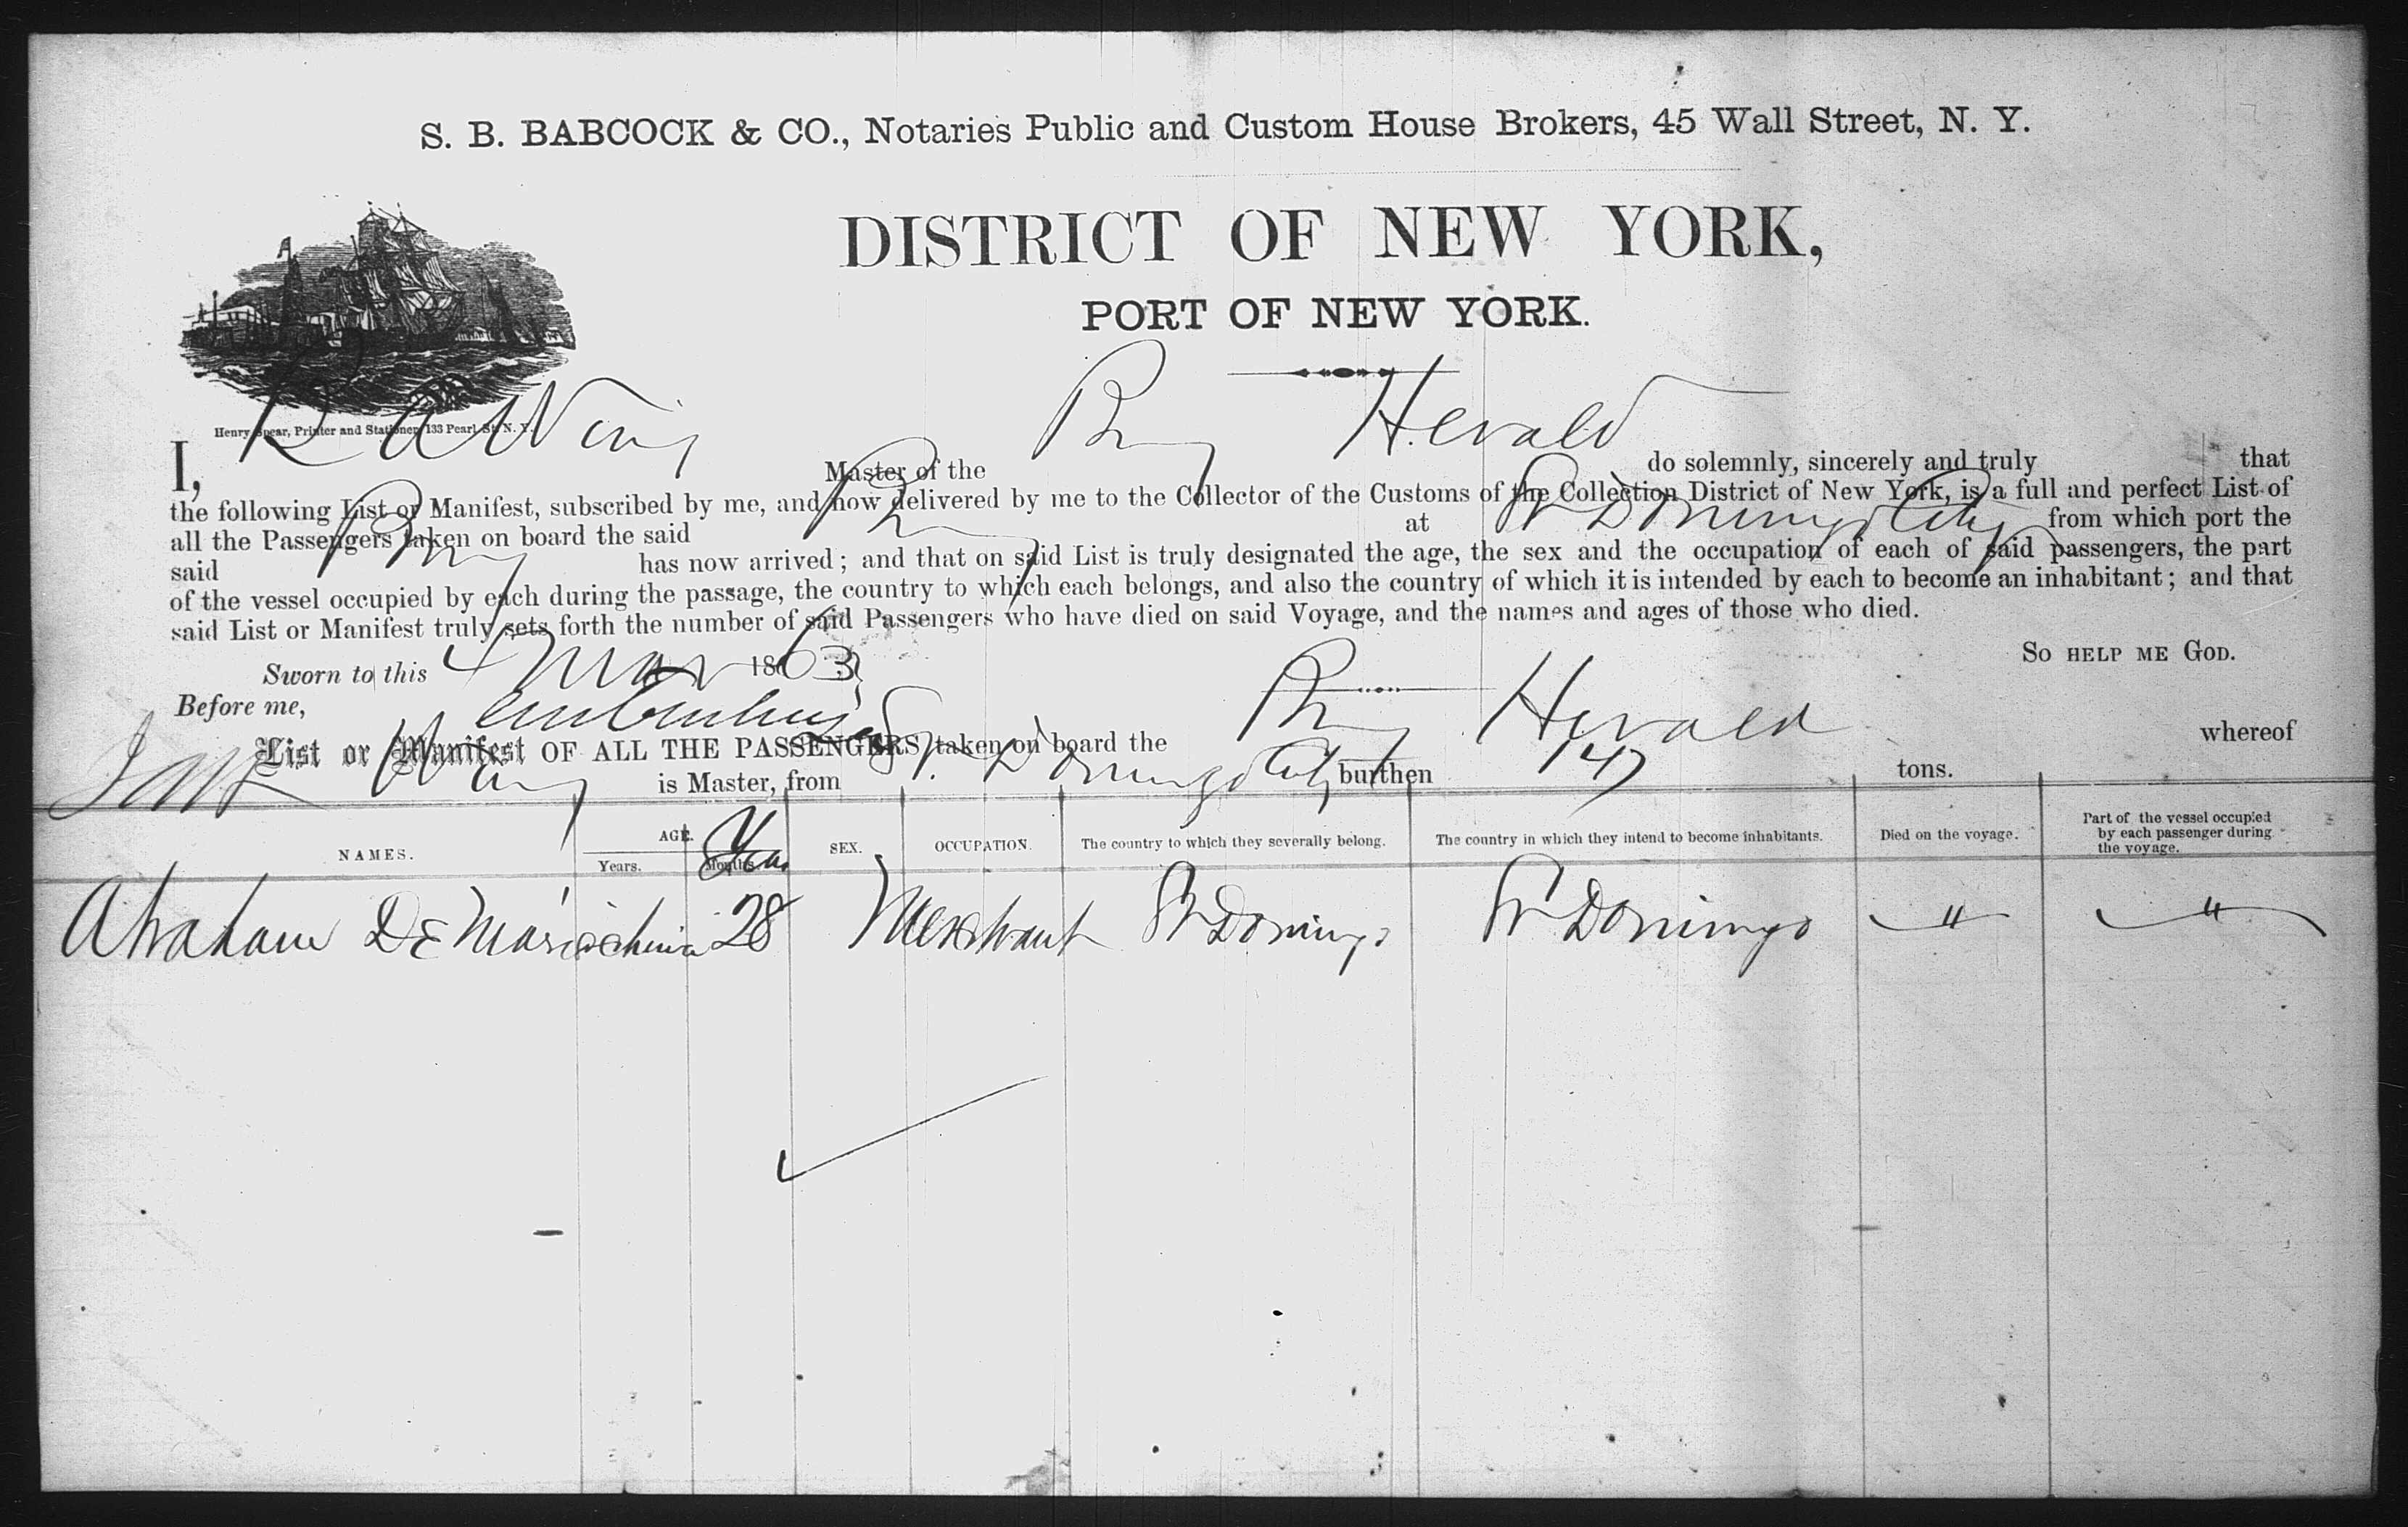 S. B. BABCOCK & CO., Notaries Public and Custom House Brokers, 45 Wall Street, N. Y.
DISTRICT OF NEW YORK,
PORT OF NEW YORK.
Henry Spear, Printer and Stationer, 133 Pearl St. N. Y.
I, Master of the Herald do solemnly, sincerely and truly that
the following List or Manifest, subscribed by me, and now delivered by me to the Collector of the Customs of the Collection District of New York, is a full and perfect List of
all the Passengers taken on board the said at St Domingo City from which port the
said has now arrived; and that on said List is truly designated the age, the sex and the occupation of each of said passengers, the part
of the vessel occupied by each during the passage, the country to which each belongs, and also the country of which it is intended by each to become an inhabitant; and that
said List or Manifest truly sets forth the number of said Passengers who have died on said Voyage, and the names and ages of those who died.
So HELP ME GOD.
Sworn to this 4 Mar 1863
Before me,
List or Manifest OF ALL THE PASSENGERS taken on board the Herald whereof
is Master, from St. Domingo City burthen 147 tons.
NAMES. AGE. Years. Months. SEX. OCCUPATION. The country to which they severally belong. The country in which they intend to become inhabitants. Died on the voyage. Part of the vessel occupied by each passenger during the voyage.
Abraham De 28 Merchant St Domingo St Domingo " "